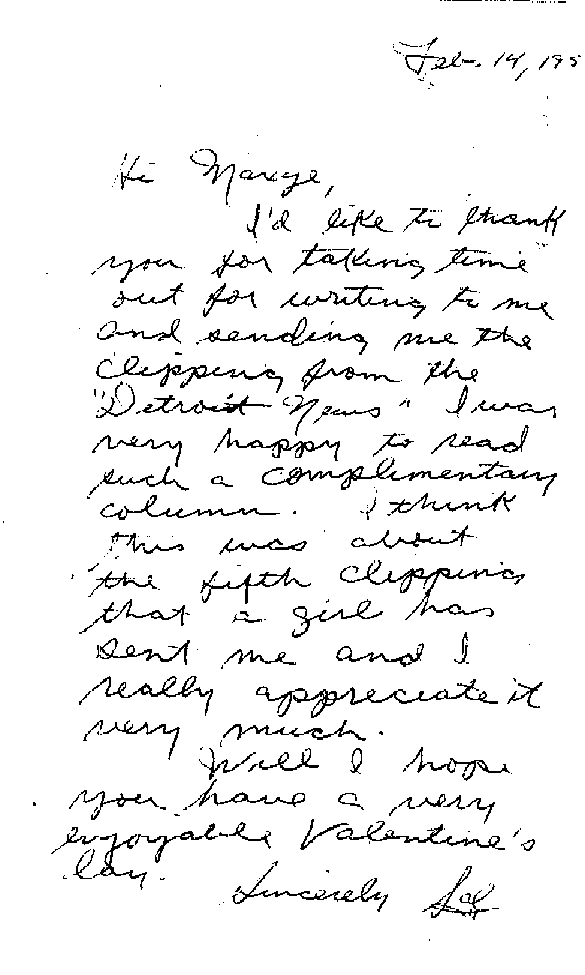 Feb. 14, 195
Hi Marge,
I'd like to thank
you for taking time
out for writing to me
and sending me the
clipping from the
"Detroit News" I was
very happy to read
such a complimentary
column. I think
this was about
the fifth clipping
that a girl has
sent me and I
really appreciate it
very much.
Well I hope
you have a very
enjoyable Valentine's
Day.
Sincerely Sal